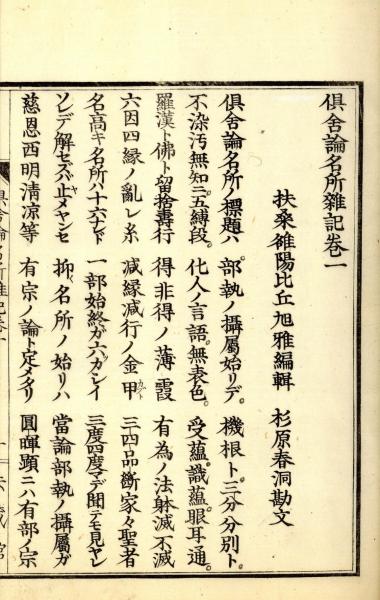 倶舎論名所雜記卷一
扶桑雒陽比丘旭雅編輯 杉原春洞勘文
倶舎論名所ノ標題ハ 部執ノ攝屬始リデ。 機根ト。三分分別ト。
不染汚無知ニ。五縛段。 化人ノ言語。無表色。 受蘊。識蘊。眼耳通。
羅漢ト佛ト留捨壽行 得非得ノ薄霞 有為ノ法躰滅不滅
六因四縁ノ亂レ糸 減縁減行ノ金甲 三四品斷家々聖者
名高キ名所ハ十六ナレド 一部始終ガ六ガシイ 三度四度マデ聞テモ見ヤレ
ソレデ解セズバ止メヤンセ 抑〻名所ノ始リハ 當論部執ノ攝屬ガ
慈恩西明清凉等 有宗ノ論ト定メタリ 圓暉顕ニハ有部ノ宗